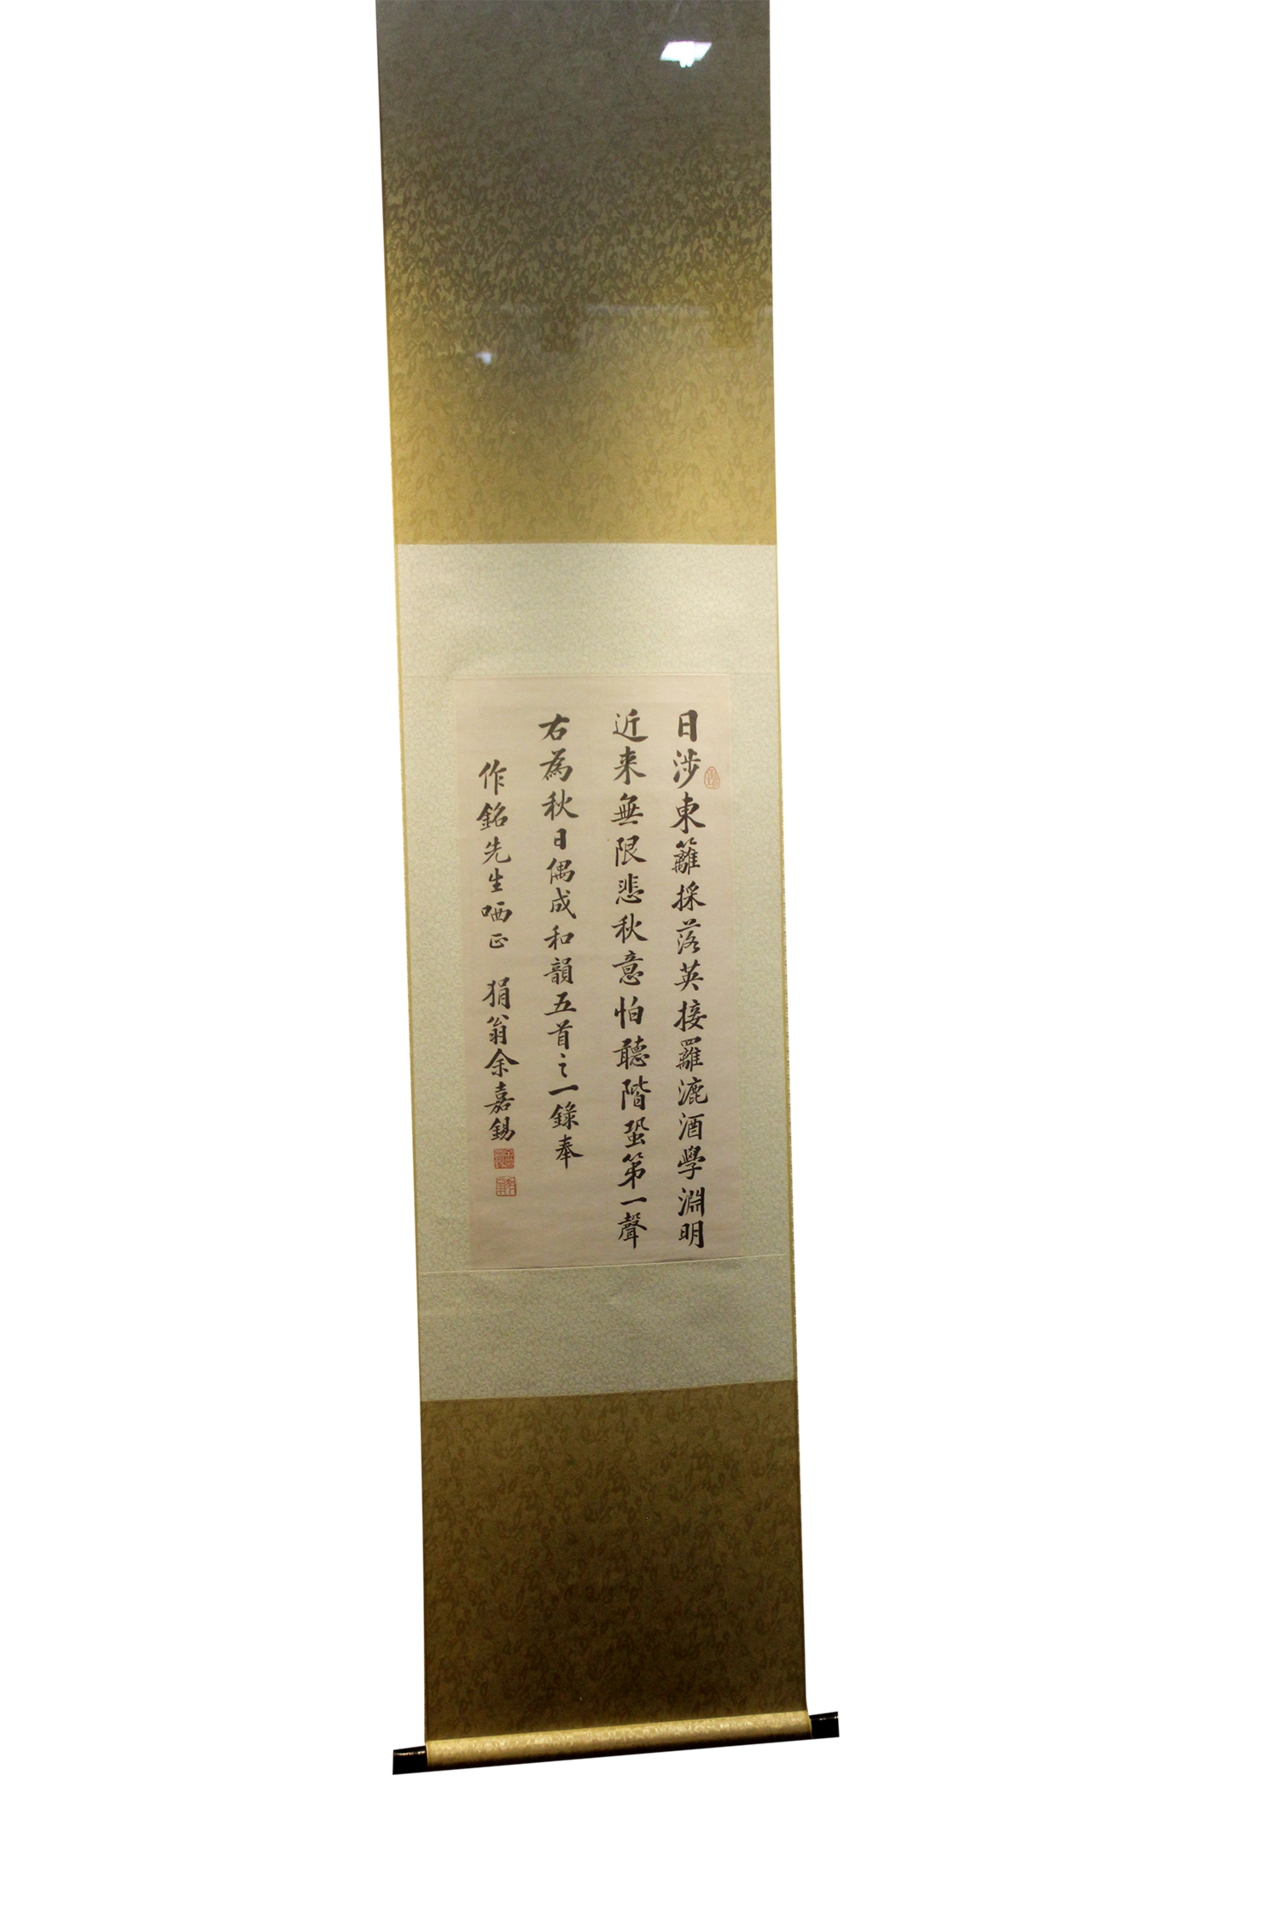 日涉東籬採落英接䍦漉酒學淵明
近来無限悲秋意怕聽階蛩第一聲
右為秋日偶成和韻五首之一錄奉
作銘先生哂正 狷翁余嘉錫